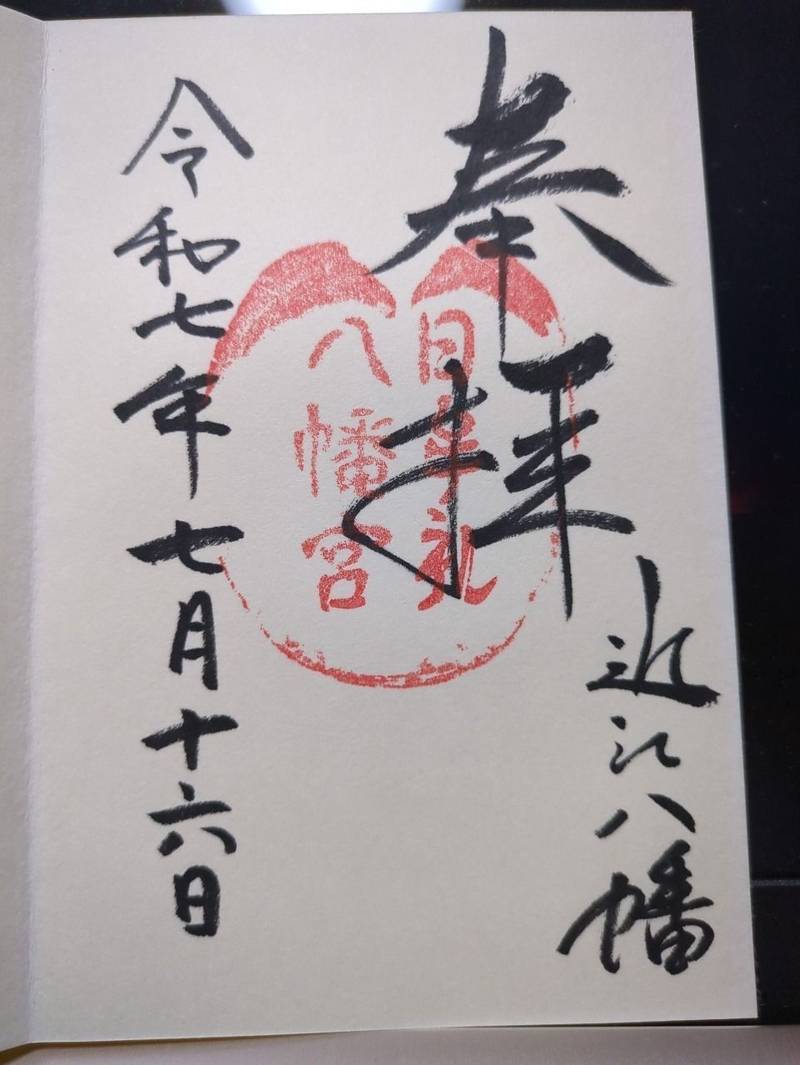 奉拝
近江八幡
日牟礼
八幡宮
令和七年七月十六日